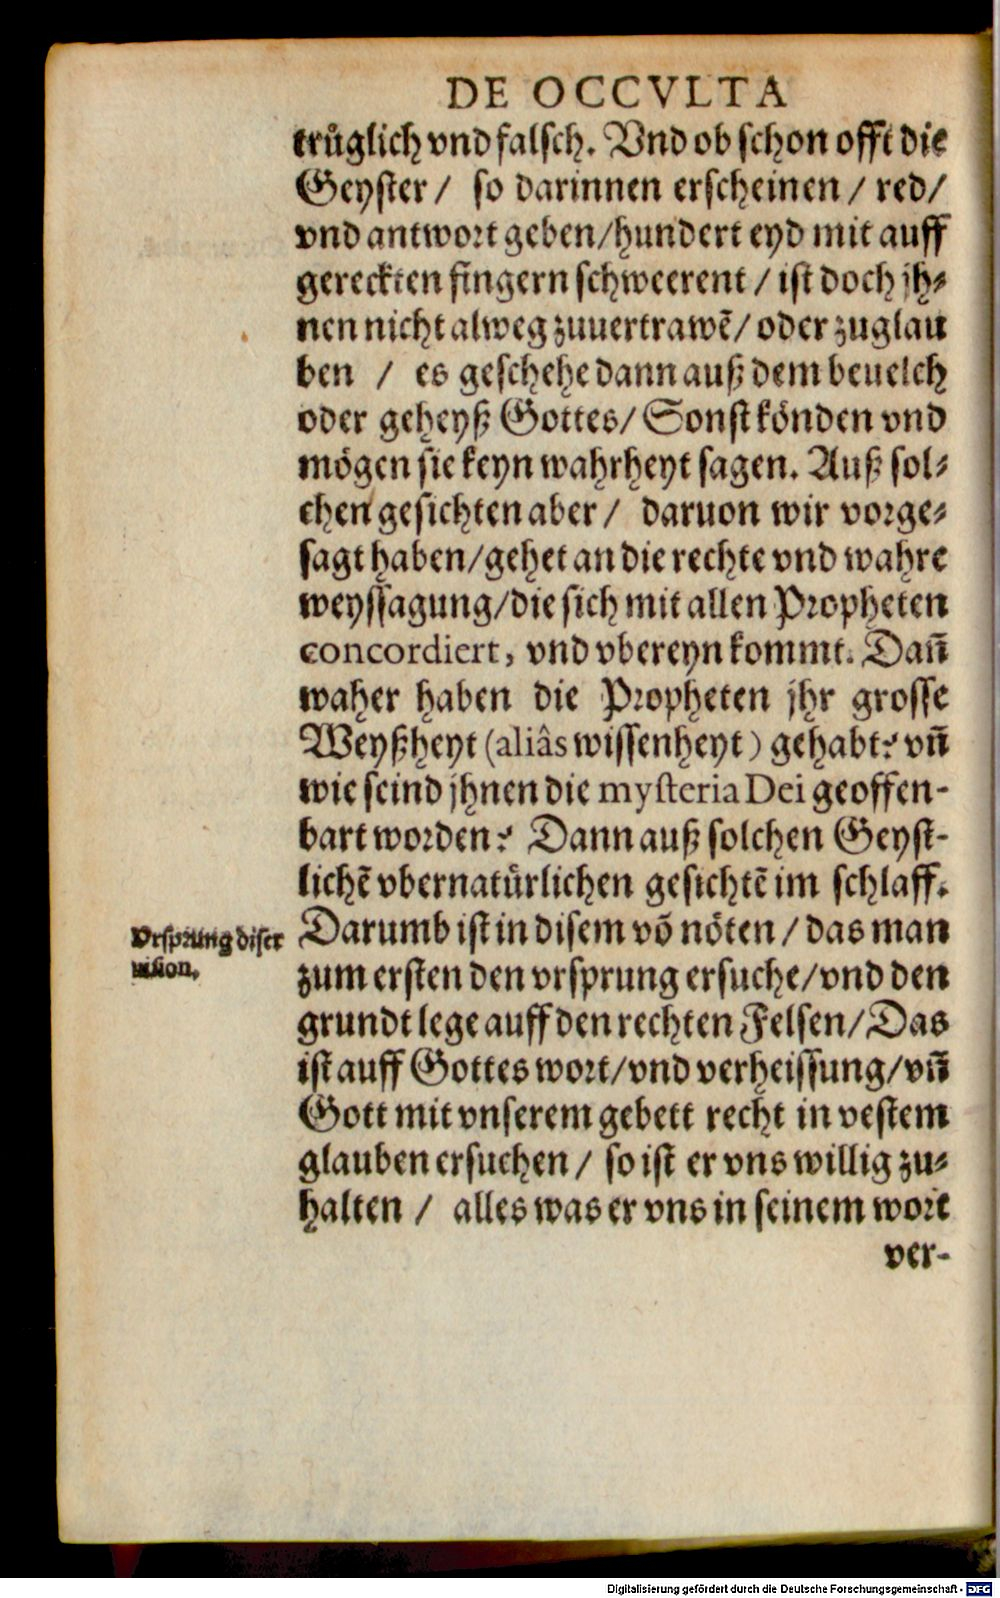 DE OCCVLTA
trůglich vnd falsch. Vnd ob schon offt die
Geyster / so darinnen erscheinen / red/
vnd antwort geben/hundert eyd mit auff
gereckten fingern schweerent / ist doch jh⸗
nen nicht alweg zuuertrawẽ/ oder zuglau
ben / es geschehe dann auß dem beuelch
oder geheyß Gottes/ Sonst könden vnd
mögen sie keyn wahrheyt sagen. Auß sol⸗
chen gesichten aber / daruon wir vorge⸗
sagt haben/gehet an die rechte vnd wahre
weyssagung/die sich mit allen Propheten
concordiert, vnd vbereyn kommt. Dañ
waher haben die Propheten jhr grosse
Weyßheyt (aliâs wissenheyt) gehabt? vñ
wie seind jhnen die mysteria Dei geoffen-
bart worden? Dann auß solchen Geyst-
lichẽ vbernatůrlichen gesichtẽ im schlaff.
Darumb ist in disem võ nöten / das man
zum ersten den vrsprung ersuche/vnd den
grundt lege auff den rechten Felsen/Das
ist auff Gottes wort/vnd verheissung/vñ
Gott mit vnserem gebett recht in vestem
glauben ersuchen / so ist er vns willig zu⸗
halten / alles was er vns in seinem wort
ver-
Vrsprung diser
uision.
Digitalisierung gefördert durch die Deutsche Forschungsgemeinschaft - DFG